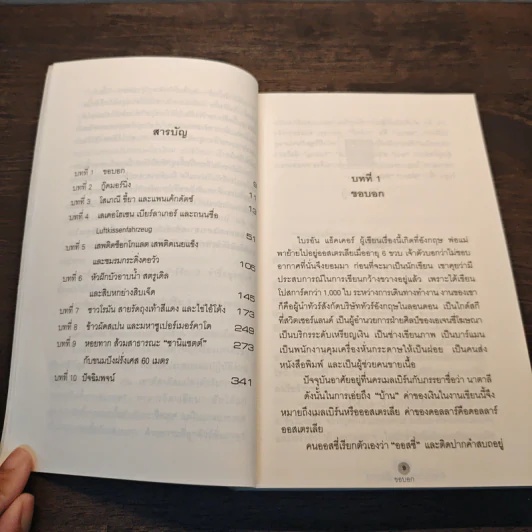 สารบัญ
บทที่ 1 ขอบอก 9
บทที่ 2 กู๊ดมอร์นิ่ง 11
บทที่ 3 โสเภณี ขี้ยา และแพนเค้กดัตช์ 13
บทที่ 4 เลเดอโฮเซน เบียร์ลาเกอร์ และถนนชื่อ
Luftkissenfahrzeug 51
บทที่ 5 เสพติดช็อกโกแลต เสพติดเนยแข็ง
และชมรมกระดิ่งคอวัว 105
บทที่ 6 หัวฝักบัวอาบน้ำ สตรูเดิล
และสิบหกย่างสิบเจ็ด 145
บทที่ 7 ชาวโรมัน สายรัดถุงเท้าสีแดง และโชโอ้โด้ง 173
บทที่ 8 ข้าวผัดสเปน และมหาซูเปอร์เมอร์คาโด 249
บทที่ 9 หอยทาก ส้วมสาธารณะ “ซานิแซตต์” 273
กับขนมปังฝรั่งเศส 60 เมตร
บทที่ 10 ปัจฉิมพจน์ 341
บทที่ 1
ขอบอก
ไบรอัน แธ็คเคอร์ ผู้เขียนเรื่องนี้เกิดที่อังกฤษ พ่อแม่
พาย้ายไปอยู่ออสเตรเลียเมื่ออายุ 6 ขวบ เจ้าตัวบอกว่าไม่ชอบ
อากาศที่นั่นจึงยอมมา ก่อนที่จะมาเป็นนักเขียน เขาคุยว่ามี
ประสบการณ์การเขียนกว้างขวางอยู่แล้ว เพราะได้เขียน
โปสการ์ดกว่า 1,000 ใบ ระหว่างการเดินทางทำงาน งานของเขา
ก็คือผู้นำทัวร์สังกัดบริษัททัวร์อังกฤษในลอนดอน เป็นไกด์สกี
ที่สวิตเซอร์แลนด์ เป็นผู้อำนวยการฝ่ายศิลป์ของเอเจนซี่โฆษณา
เป็นบริกรระดับเหรียญเงิน เป็นช่างเขียนภาพ เป็นบาร์แมน
เป็นพนักงานคุมเครื่องหั่นกระดาษให้เป็นฝอย เป็นคนส่ง
หนังสือพิมพ์ และเป็นผู้ช่วยคนขายเนื้อ
ปัจจุบันอาศัยอยู่ที่นครเมลเบิร์นกับภรรยาชื่อว่า นาตาลี
ดังนั้นในการเอ่ยถึง “บ้าน” ค่าของเงินในงานเขียนนี้จึง
หมายถึงเมลเบิร์นหรือออสเตรเลีย ค่าของดอลลาร์คือดอลลาร์
ออสเตรเลีย
คนออสซี่เรียกตัวเองว่า “ออสซี่” และติดปากคำสบถอยู่
9
ขอบอก